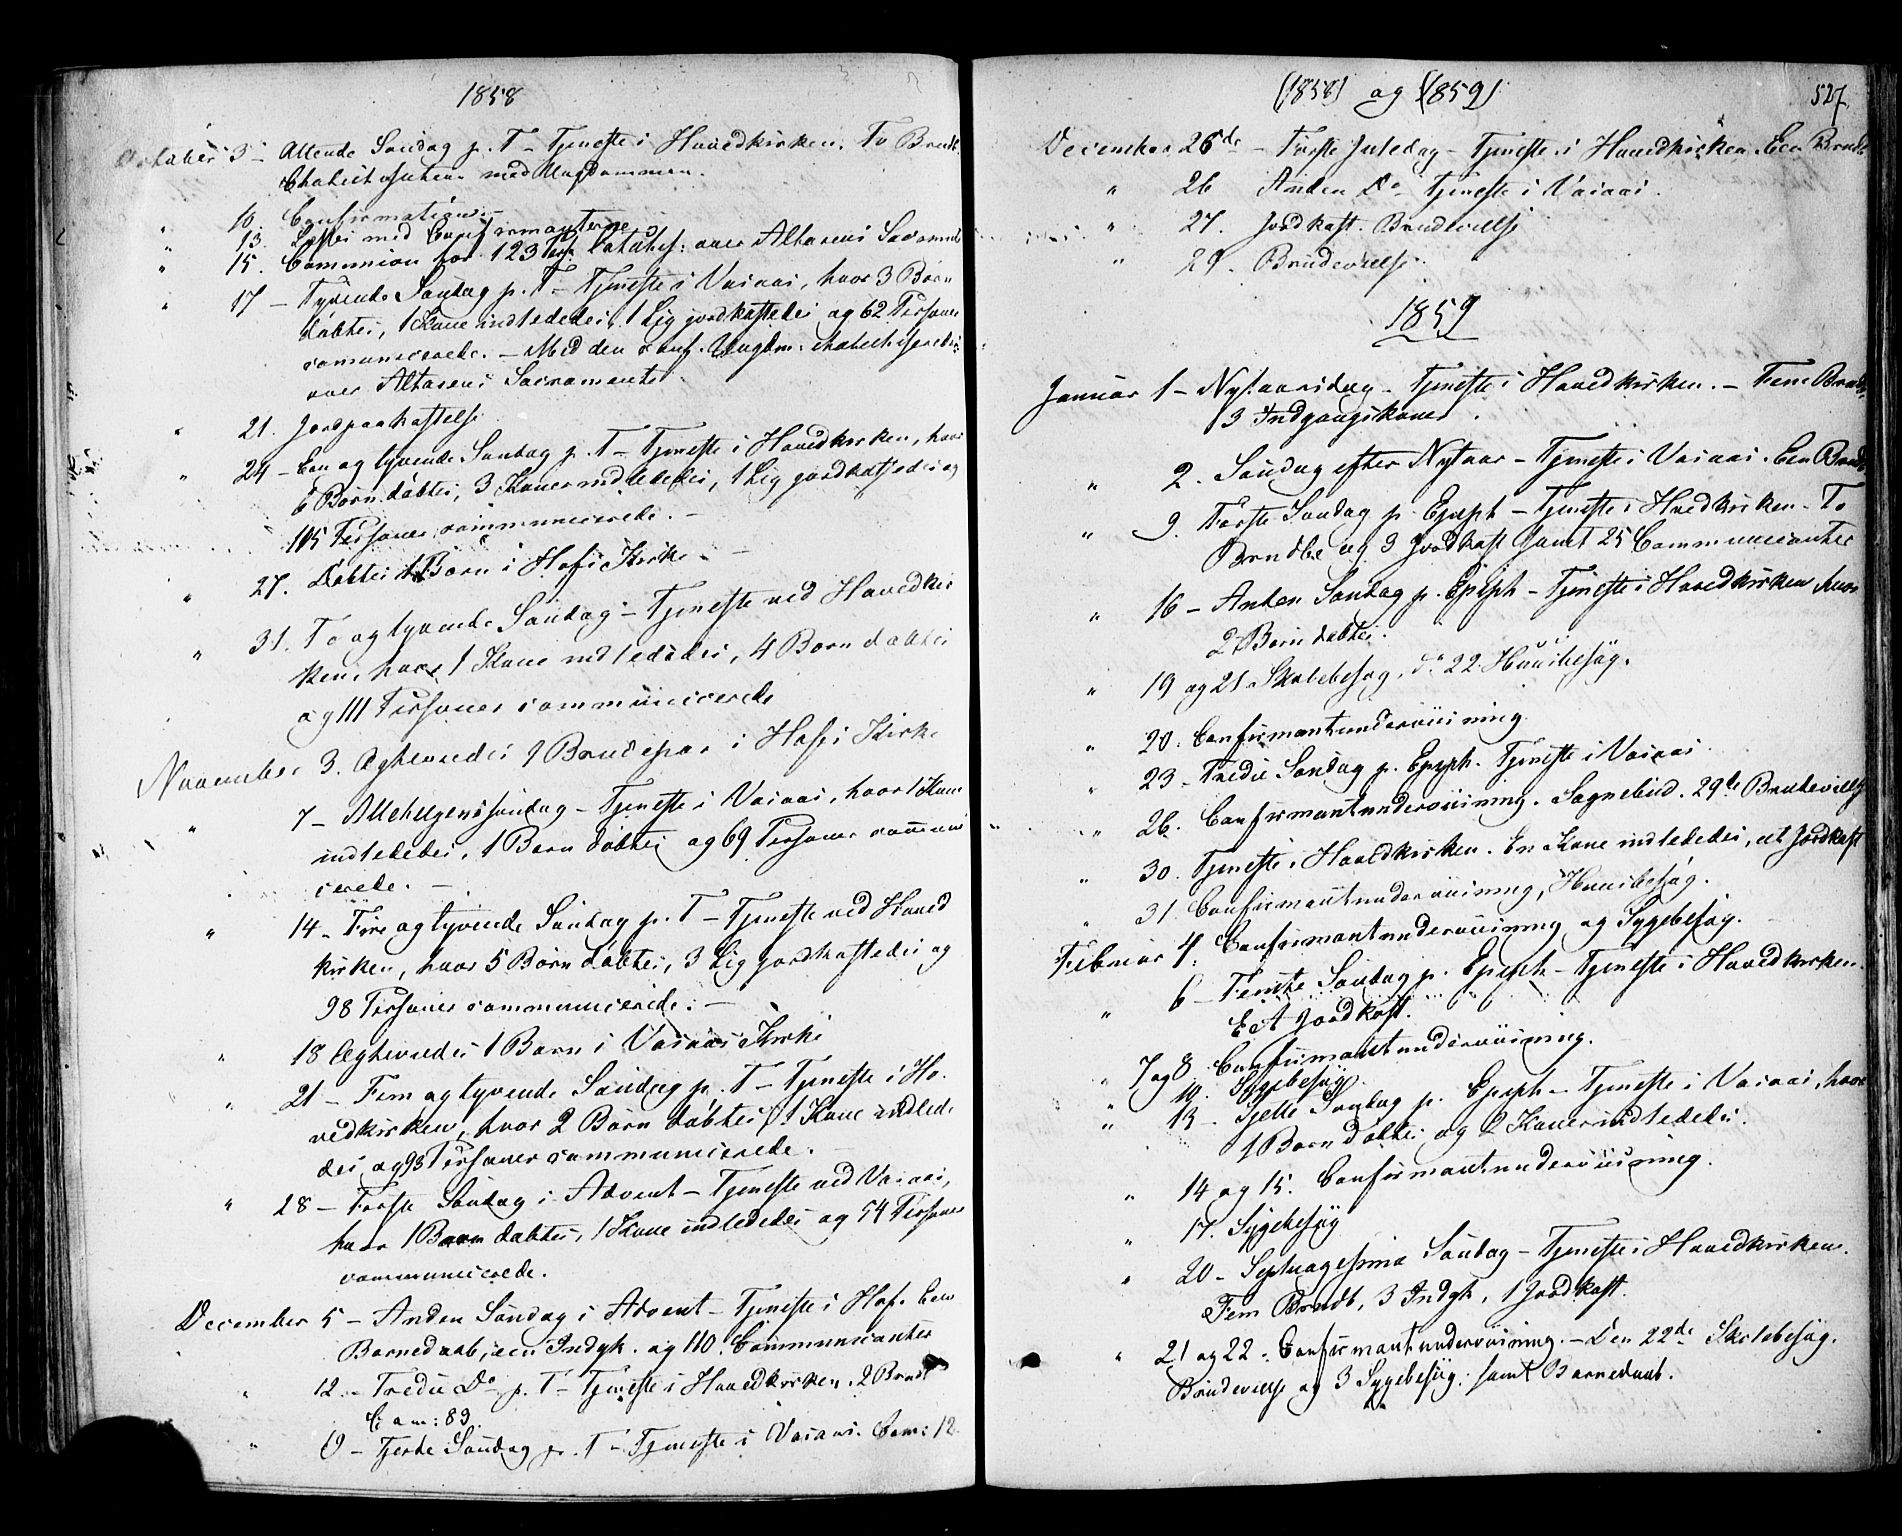 1858
October 3 – Attende Søndag p. T – Tjeneste i Hovedkirken. To Brndb.
Chatechisation med Ungdommen.
" 10. Confirmation. –
" 13. Læst med Confirmanterne
" 15. Communion for 123 Catches: over Altarens Sacrament
" 17 – Tyvende Søndag p. T – Tjeneste i Vasaas, hvor 3 Børn
døbtes, 1 Kone indlededes, 1 Lig jordkastedes og 62 Personer
comunicerede. – Med den conf. Ungdm: chatechiseredes
over Altarens Sacramente
" 21. Jordpaakastelse
" 24 – Een og tyvende Søndag p. T – Tjeneste i Hovedkirken, hvor
6 Børn døbtes, 3 Koner indlededes, 1 Lig jordkastedes og
105 Personer communicerede. –
" 27. Døbtes 1 Barn i Hofs Kirke. –
" 31. To og tyvende Søndag – Tjeneste ved Hovedkir
ken, hvor 1 Kone indlededes, 4 Børn døbtes
og 111 Personer communicerede
November 3. Ægteviedes 1 Brudepar i Hofs Kirke
" 7 – Allehelgenssøndag – Tjeneste i Vasaas, hvor 1 Kone
indlededes, 1 Barn døbtes og 69 Personer commun
cerede. –
" 14 – Fire og tyvende Søndag p. T – Tjeneste ved Hoved
kirken, hvor 5 Børn døbtes, 3 Lig jordkastedes og
98 Personer communicerede. –
" 18 Ægteviedes 1 Barn i Vasaas Kirke
" 21 – Fem og tyvende Søndag p. T – Tjeneste i Ho
vedkirken, hvor 2 Børn døbtes, 1 Kone indlede
des, og 93 Personer communicerede.
" 28 – Første Søndag i Advent – Tjeneste ved Vasaas,
hvor 1 Barn døbtes, 1 Kone indlededes og 54 Personer
communicerede.
December 5 – Anden Søndag i Advent – Tjeneste i Hof. Een
Barnedaab, een Indgk. og 110 Communicanter
" 12 – Tredie Do p. T – Tjeneste i Hovedkirken. 2 Brndb
Com: 83.
" 19 – Fjerde Søndag p. T – Tjeneste i Vasaas. Com: 12
(1858) og (1859) 527.
December 25de – Første Juledag – Tjeneste i Hovedkirken. Een Brndb
" 26 Anden Do Tjeneste i Vasaas.
" 27. Jordkast. Brudevielse
" 29. Brudevielse.
1859
Januar 1 – Nytaarsdag – Tjeneste i Hovedkirken. – Fem Brndb,
3 Indgangskoner.
" 2. Søndag efter Nytaar – Tjeneste i Vasaas. Een Brndb
" 9. Første Søndag p. Epiph – Tjeneste i Hovedkirken – To
Brndbe og 3 Jordkast samt 25 Communicanter
" 16 – Anden Søndag p. Epiph – Tjeneste i Hovedkirken hvor
2 Børn døbtes.
" 19 og 21 Skolebesøg, do 22 Huusbesøg.
" 20. Confirmantunderviisning
" 23 – Tredie Søndag p. Epiph. Tjeneste i Vasaas.
" 26. Confirmantunderviisning. Sognebud. 29de Brudevielse
" 30. Tjeneste i Hovedkirken. En Kone indlededes, et Jordkast
" 31. Confirmantunderviisning, Huusbesøg.
Februar 4. Confirmantunderviisning og Sygebesøg.
" 6 – Femte Søndag p. Epiph – Tjeneste i Hovedkirken.
Et Jordkast.
" 7 og 8. Confirmantunderviisning.
" 10. Sygebesøg
" 13 – Sjette Søndag p. Epiph – Tjeneste i Vasaas, hvor
1 Barn døbtes og 2 Koner indlededes.
" 14 og 15. Confirmantunderviisning.
" 17. Sygebesøg
" 20 – Septuagesima Søndag – Tjeneste i Hovedkirken.
Fem Brndb, 3 Indgk, 1 Jordkast.
" 21 og 22. Confirmantunderviisning. – Den 22de Skolebesøg.
Brudevielse og 3 Sygebesøg, samt Barnedaab.